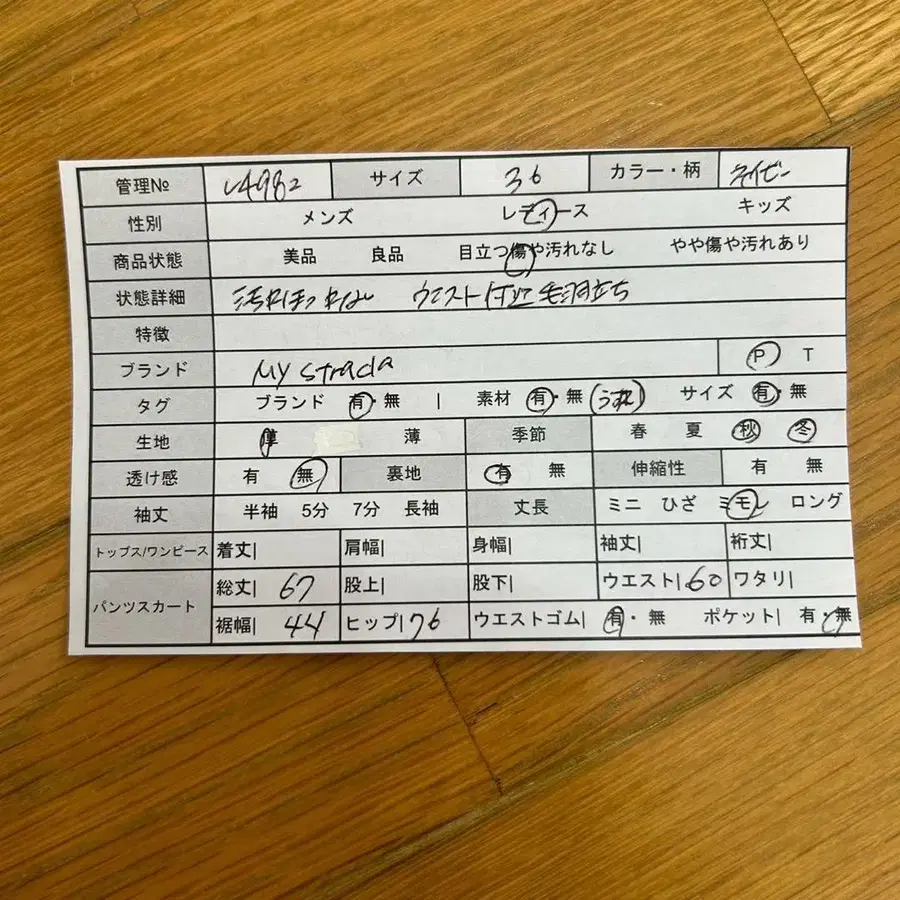 管理№ サイズ 36 カラー・柄 ネイビー
性別 メンズ レディース キッズ
商品状態 美品 良品 目立つ傷や汚れなし やや傷や汚れあり
状態詳細 ウエスト付近毛羽立ち
特徴
ブランド My strada P T
タグ ブランド 有・無 | 素材 有・無 (うすれ) サイズ 有・無
生地 厚 薄 季節 春 夏 秋 冬
透け感 有 無 裏地 有 無 伸縮性 有 無
袖丈 半袖 5分 7分 長袖 丈長 ミニ ひざ ミモレ ロング
トップス/ワンピース 着丈| 肩幅| 身幅| 袖丈| 裄丈|
パンツスカート 総丈| 67 股上| 股下| ウエスト| 60 ワタリ|
裾幅| 44 ヒップ| 76 ウエストゴム| 有・無 ポケット| 有・無